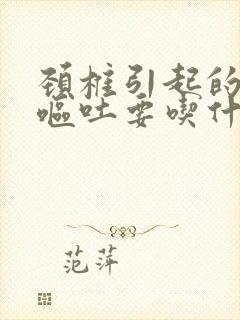 颈椎引起的
呕吐要喫什
范萍